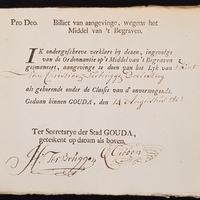 Pro Deo. Billiet van aangevinge, wegens het
Middel van 't Begraven.
IK ondergeschreve verklare by dezen, ingevolge
van de Ordonnantie op 't Middel van 't Begraven
geëmaneert, aangevinge te doen van het Lyk van
van Christiaan
als gehorende onder de Classis van d' onvermogende.
Gedaan binnen GOUDA, den 14 Augustus
Ter Secretarye der Stad GOUDA,
geteikent op datum als boven,